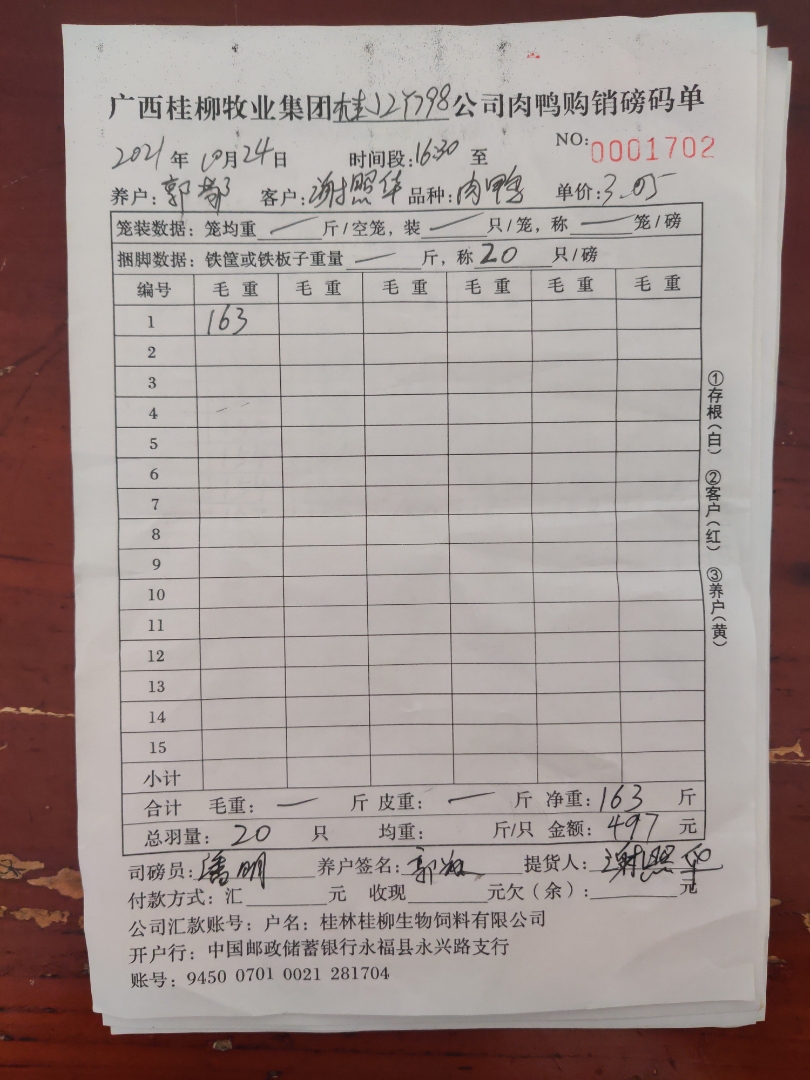 广西桂柳牧业集团桂J2Y798公司肉鸭购销磅码单
2021年10月24日 时间段:16:30 至 NO:0001702
养户:郭 客户:谢照华 品种:肉鸭 单价:3.05
笼装数据: 笼均重 — 斤/空笼, 装 — 只/笼, 称 — 笼/磅
捆脚数据: 铁筐或铁板子重量 — 斤, 称 20 只/磅
编号 毛重 毛重 毛重 毛重 毛重 毛重
1 163
2
3
4
5
6
7
8
9
10
11
12
13
14
15
小计
合计 毛重: — 斤 皮重: — 斤 净重: 163 斤
总羽量: 20 只 均重: 斤/只 金额: 497 元
司磅员: 潘明 养户签名: 郭 提货人: 谢照华
付款方式: 汇 元 收现 元欠(余): 元
公司汇款账号: 户名: 桂林桂柳生物饲料有限公司
开户行: 中国邮政储蓄银行永福县永兴路支行
账号: 9450 0701 0021 281704
①存根(白) ②客户(红) ③养户(黄)